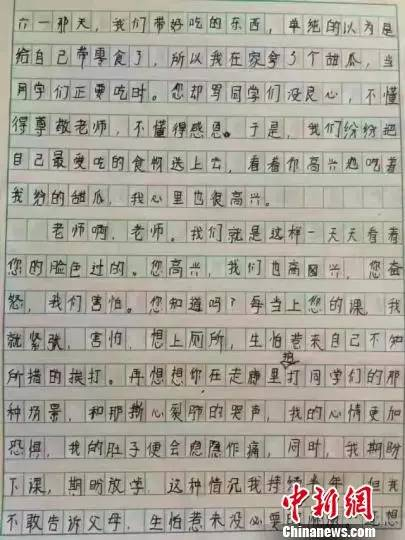 六一那天，我们带好吃的东西，单纯的以为是
给自己带零食了，所以我在家拿了个甜瓜，当
同学们正要吃时。您却骂同学们没良心，不懂
得尊敬老师，不懂得感恩。于是，我们纷纷把
自己最爱吃的食物送上去，看着你高兴地吃着
我给的甜瓜，我心里也很高兴。
老师啊，老师。我们就是这样一天天看着
您的脸色过的。您高兴，我们也高兴，您奋
怒，我们害怕。您知道吗？每当上您的课，我
就紧张，害怕，想上厕所，生怕惹来自己不知
所措的挨打。再想想你在走廊里抱打同学们的那
种场景，和那撕心裂肺的哭声，我的心情更加
恐惧，我的肚子便会隐隐作痛，同时，我期盼
下课，期盼放学，这种情况我持续半年，但我
不敢告诉父母，生怕惹来没必要 想
中新网
www.chinanews.com